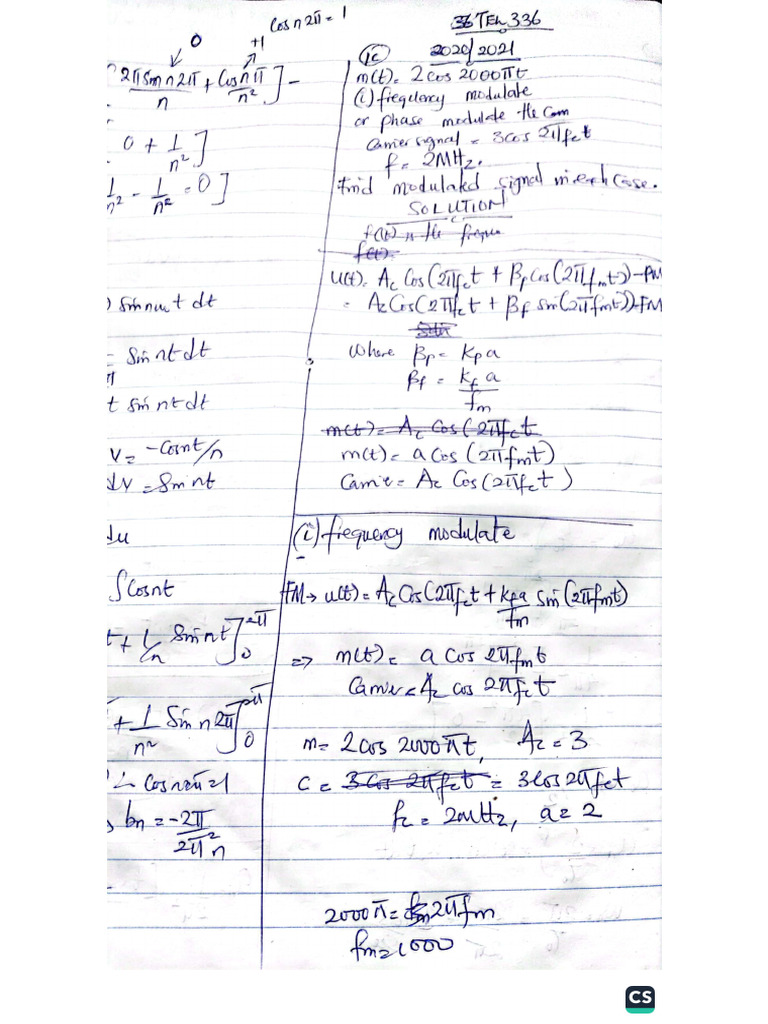 Cos n 2π = 1
0
+1
2π Sin n 2π + Cos n π ] -
n n²
0 + 1 ]
n²
1 - 1 = 0 ]
n² n²
) Sin nω t dt
= Sin nt dt
π
t sin nt dt
v = -Cosnt/n
dv = Sin nt
du
∫ Cosnt
t + 1/n Sin nt ]₀^2π
+ 1 Sin n 2π ]₀^2π
n²
∴ Cos n2π = 1
bn = -2π
2π² n
36 TEL 336
2020/2021
1c
m(t) = 2 cos 2000πt
(i) frequency modulate
or phase modulate the
Carrier signal = 3 cos 2πfct
f = 2MHz.
find modulated signal in each case.
SOLUTION
f(t) is the
f(t)
u(t) = Ac Cos(2πfct + βp Cos(2πfmt)) - PM
= Ac Cos(2πfct + βf sin(2πfmt)) - FM
Where βp = Kpa
βf = Kf a
fm
m(t) = Ac Cos(2πfct
m(t) = a Cos(2πfmt)
Carrier = Ac Cos(2πfct)
(i) frequency modulate
FM → u(t) = Ac Cos(2πfct + kfa sin(2πfmt)
fm
=> m(t) = a Cos 2πfmt
Carrier = Ac cos 2πfct
m = 2 cos 2000πt, Ac = 3
C = 3 Cos 2πfct = 3 Cos 2πfct
fc = 2MHz, a = 2
2000π = 2πfm
fm = 1000
CS